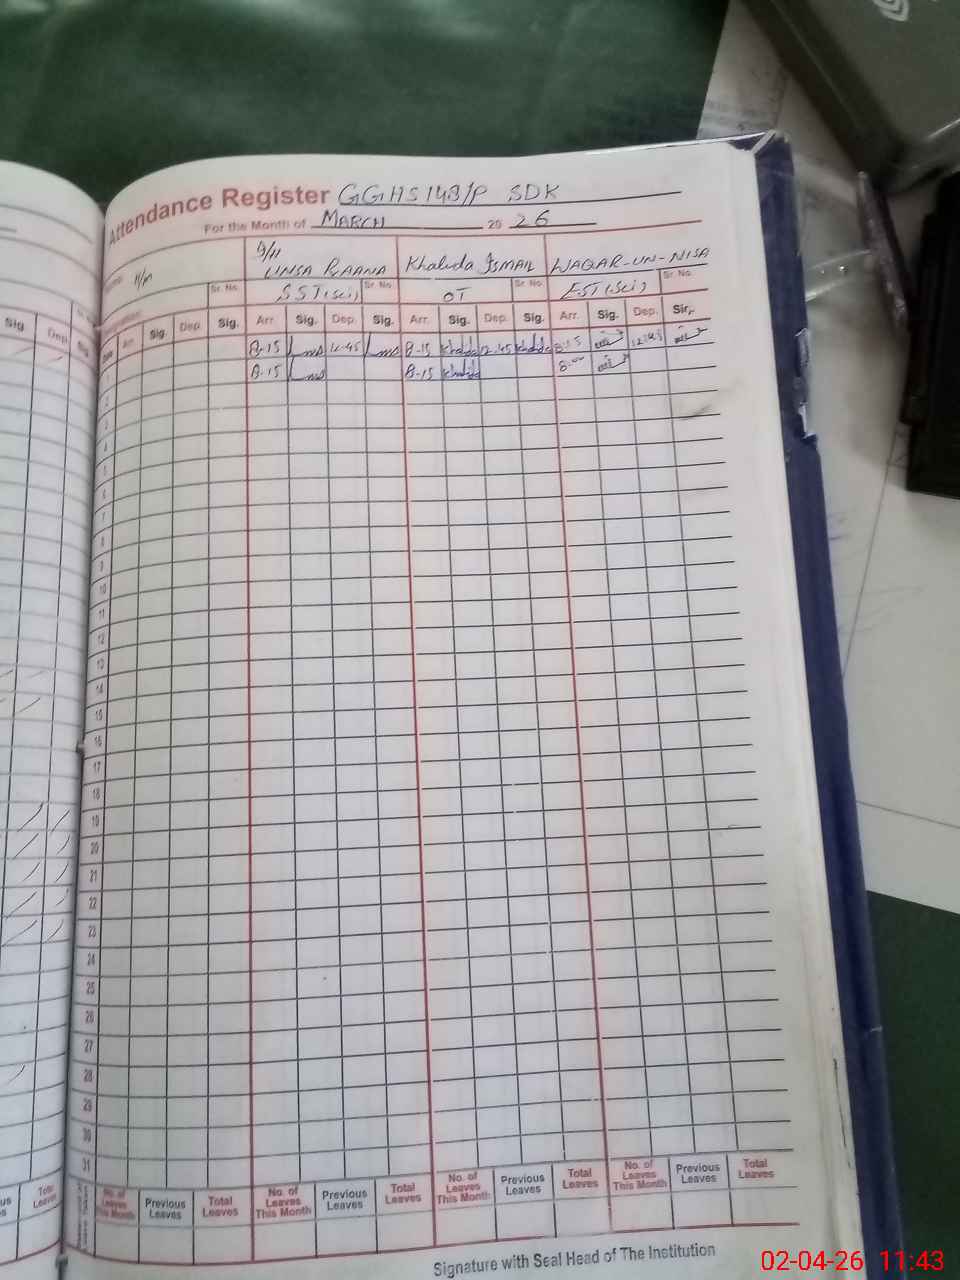 Attendance Register GGHS 148/P SDK
For the Month of MARCH 20 26
9/11
UNSA RAANA Khalida ISMAIL WAQAR-UN-NISA
Sr. No. SST(Sci) Sr. No. OT Sr. No. EST(Sci) Sr. No.
Sig. Dep. Arr. Sig. Dep. Sig. Arr. Sig. Dep. Sig. Arr. Sig. Dep. Sig. Arr. Sig. Dep.
8-15 12-45 8-15 Khalida 12-45 Khalida 8-15
1 8-15 8-15 Khalida
2
3
4
5
6
7
8
9
10
11
12
13
14
15
16
17
18
19
20
21
22
23
24
25
26
27
28
29
30
31
Total Leaves No. of Leaves This Month Previous Leaves Total Leaves No. of Leaves This Month Previous Leaves Total Leaves No. of Leaves This Month Previous Leaves Total Leaves No. of Leaves This Month Previous Leaves Total Leaves
Signature with Seal Head of The Institution
02-04-26 11:43